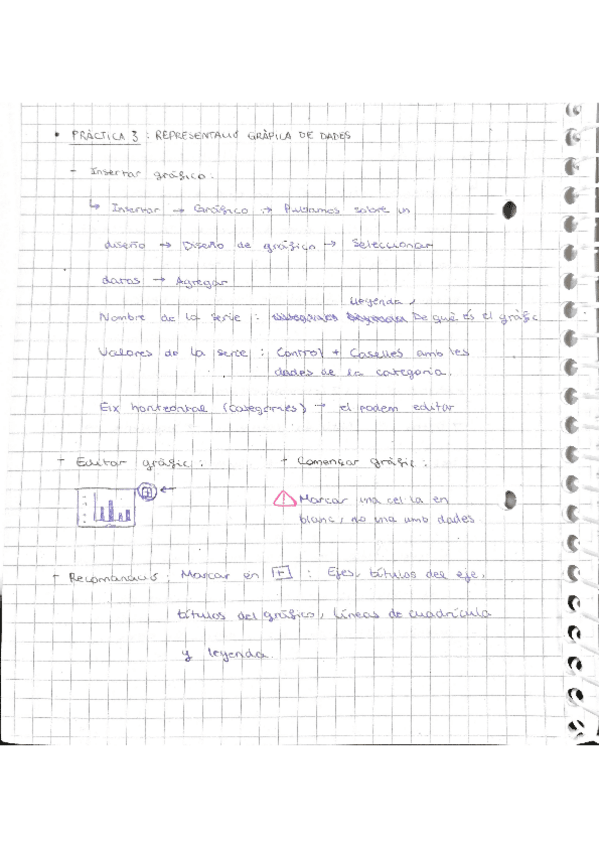 • PRÀCTICA 3 : REPRESENTACIÓ GRÀFICA DE DADES
- Insertar gráfico :
↳ Insertar → Gráfico → Pulsamos sobre un
diseño → Diseño de gráfico → Seleccionar
datos → Agregar
Leyenda,
Nombre de la serie : De què és el gràfic
Valores de la serie : Control + Caselles amb les
dades de la categoria.
Eix horitzontal (categories) → el podem editar
- Editar gràfic :
- Començar gràfic :
Marcar una cel·la en
blanc, no una amb dades
- Recomanació : Marcar en + : Ejes, títulos del eje,
títulos del gráfico, líneas de cuadrícula
y leyenda.